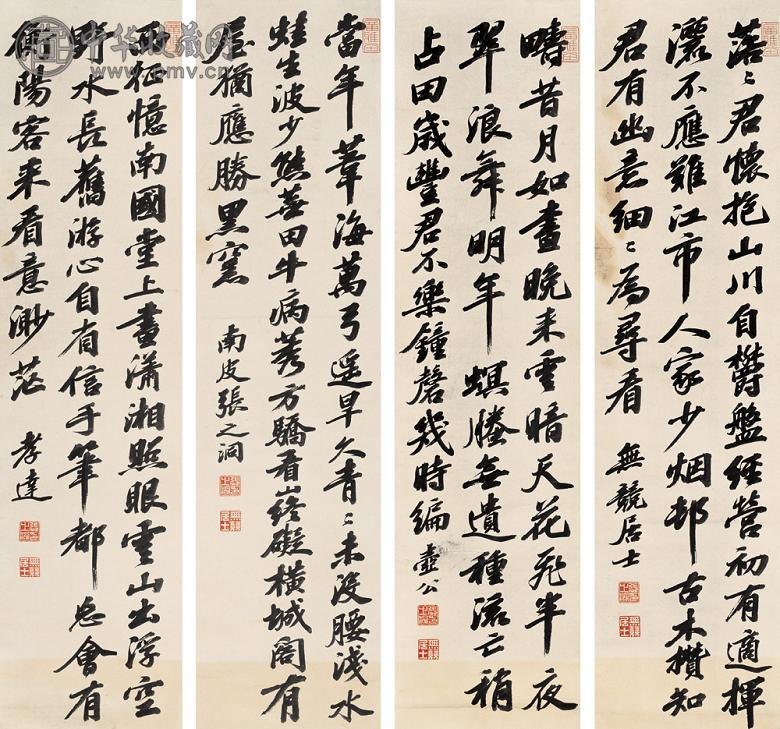 落〻君懷抱山川自欝盤經營初有適揮
灑不應難江市人家少烟邨古木攢知
君有幽意細〻為尋看 無競居士
疇昔月如晝晚来雲暗天花飛半夜
翠浪舞明年螟螣無遺種流亡稍
占田歲豐君不樂鐘磬幾時編 壺公
當年葦海萬弓遥旱久青〻未没腰淺水
蛙生波少田牛病莠方驕看山終礙橫城閣有
猶應勝黑窯 南皮張之洞
西征憶南國堂上畫瀟湘照眼雲山出浮空
野水長舊游心自信手筆都忘會有
衡陽客来看意渺茫 孝達
中华收藏网